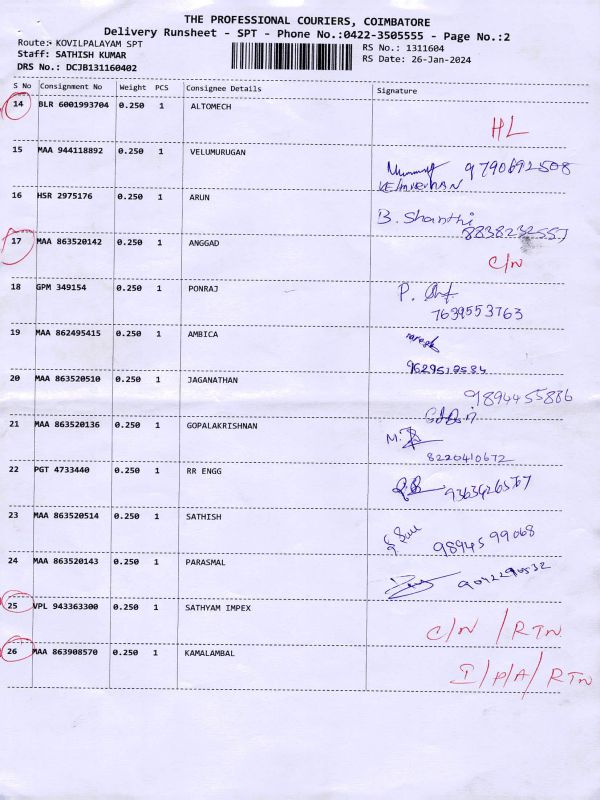 THE PROFESSIONAL COURIERS, COIMBATORE
Delivery Runsheet - SPT - Phone No.:0422-3505555 - Page No.:2
Route:- KOVILPALAYAM SPT
Staff: SATHISH KUMAR
DRS No.: DCJB131160402
RS No.: 1311604
RS Date: 26-Jan-2024
S No Consignment No Weight PCS Consignee Details Signature
14 BLR 6001993704 0.250 1 ALTOMECH
HL
15 MAA 944118892 0.250 1 VELUMURUGAN
9790692508
16 HSR 2975176 0.250 1 ARUN
B. Shanthi
8838232557
17 MAA 863520142 0.250 1 ANGGAD
C/N
18 GPM 349154 0.250 1 PONRAJ
P.
7639553763
19 MAA 862495415 0.250 1 AMBICA
20 MAA 863520510 0.250 1 JAGANATHAN
9894455886
21 MAA 863520136 0.250 1 GOPALAKRISHNAN
M.
8220410672
22 PGT 4733440 0.250 1 RR ENGG
23 MAA 863520514 0.250 1 SATHISH
9894599068
24 MAA 863520143 0.250 1 PARASMAL
9042290532
25 VPL 943363300 0.250 1 SATHYAM IMPEX
C/N / RTN
26 MAA 863908570 0.250 1 KAMALAMBAL
I/P/A/RTN